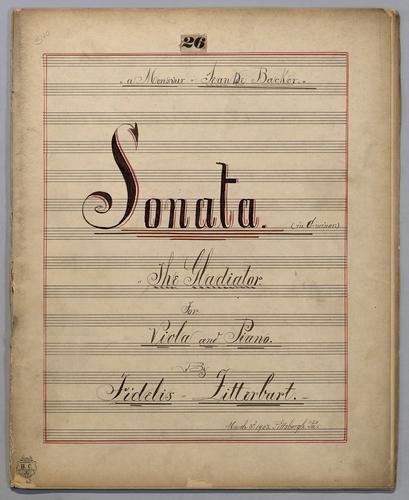 26
a Monsieur - Jean De Backer.
Sonata.
(in d minor)
"The Gladiator"
For
Viola and Piano.
By
Fidelis - Zitterbart.
1907. Pittsburgh Pa.